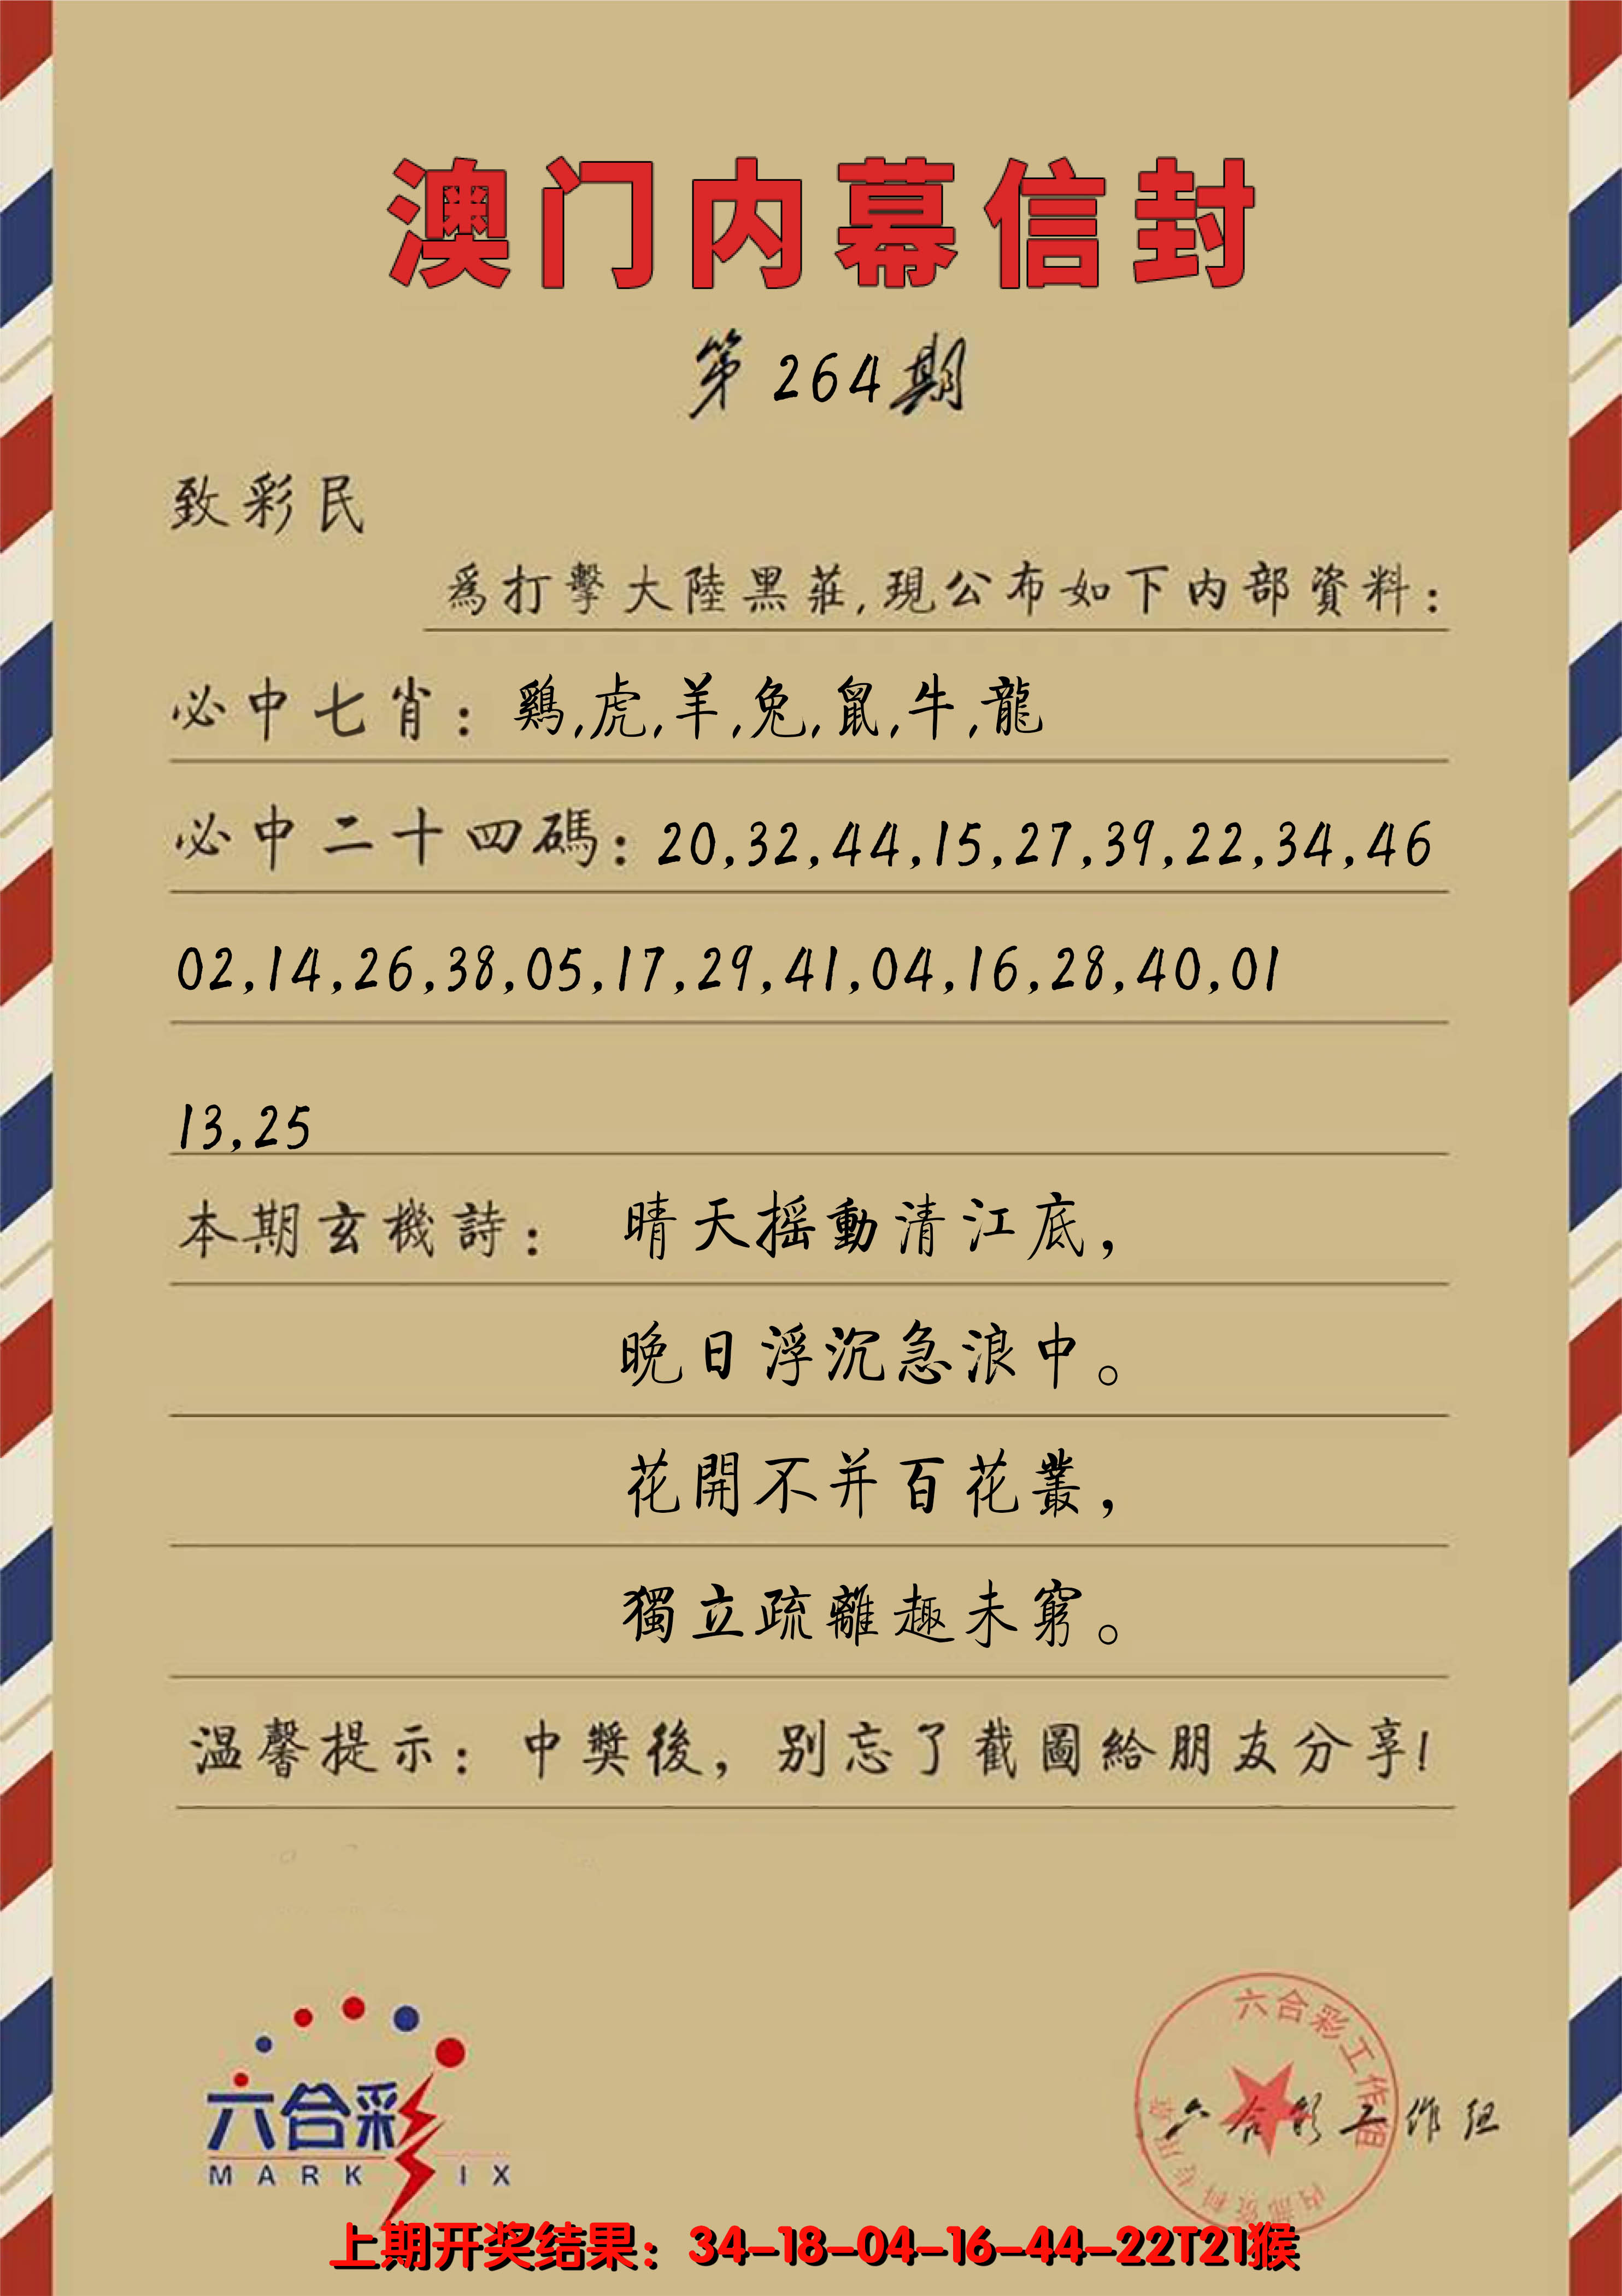 澳门内幕信封
第264期
致彩民
爲打擊大陸黑莊,現公布如下内部資料:
必中七肖:鷄,虎,羊,兔,鼠,牛,龍
必中二十四碼:20,32,44,15,27,39,22,34,46
02,14,26,38,05,17,29,41,04,16,28,40,01
13,25
本期玄機詩: 晴天摇動清江底,
晚日浮沉急浪中。
花開不并百花叢,
獨立疏離趣未窮。
温馨提示:中獎後,别忘了截圖給朋友分享!
六合彩
MARK IX
六合彩工作组
内部资料专用章
六合彩工作组
上期开奖结果:34-18-04-16-44-22T21猴